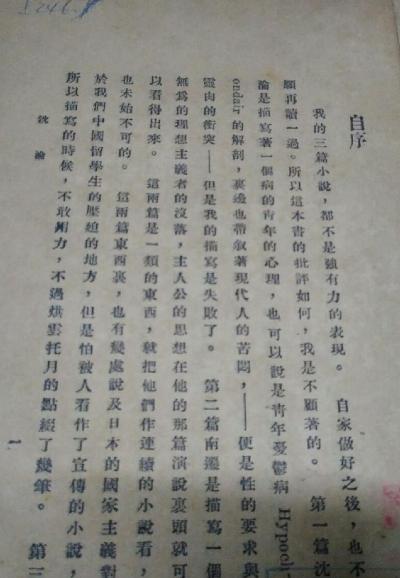 自序
我的三篇小說，都不是強有力的表現。 自家做好之後，也不
願再讀一過。所以這本書的批評如何，我是不顧著的。 第一篇沈
淪是描寫著一個病的青年的心理，也可以說是青年憂鬱病 Hypoch
ondair 的解剖，裏邊也帶敍著現代人的苦悶，——便是性的要求與
靈肉的衝突——但是我的描寫是失敗了。 第二篇南遷是描寫一個
無為的理想主義者的沒落，主人公的思想在他的那篇演說裏頭就可
以看得出來。 這兩篇是一類的東西，就把他們作連續的小說看，
也未始不可的。 這兩篇東西裏，也有幾處說及日本的國家主義對
於我們中國留學生的壓迫的地方，但是怕被人看作了宣傳的小說，
所以描寫的時候，不敢用力，不過烘雲托月的點綴了幾筆。 第三
沈淪
一